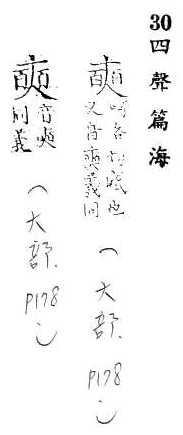 30四聲篇海
呼各切盛也
又音奭義同
(大部.P178)
音奭
同義
(大部.P178)